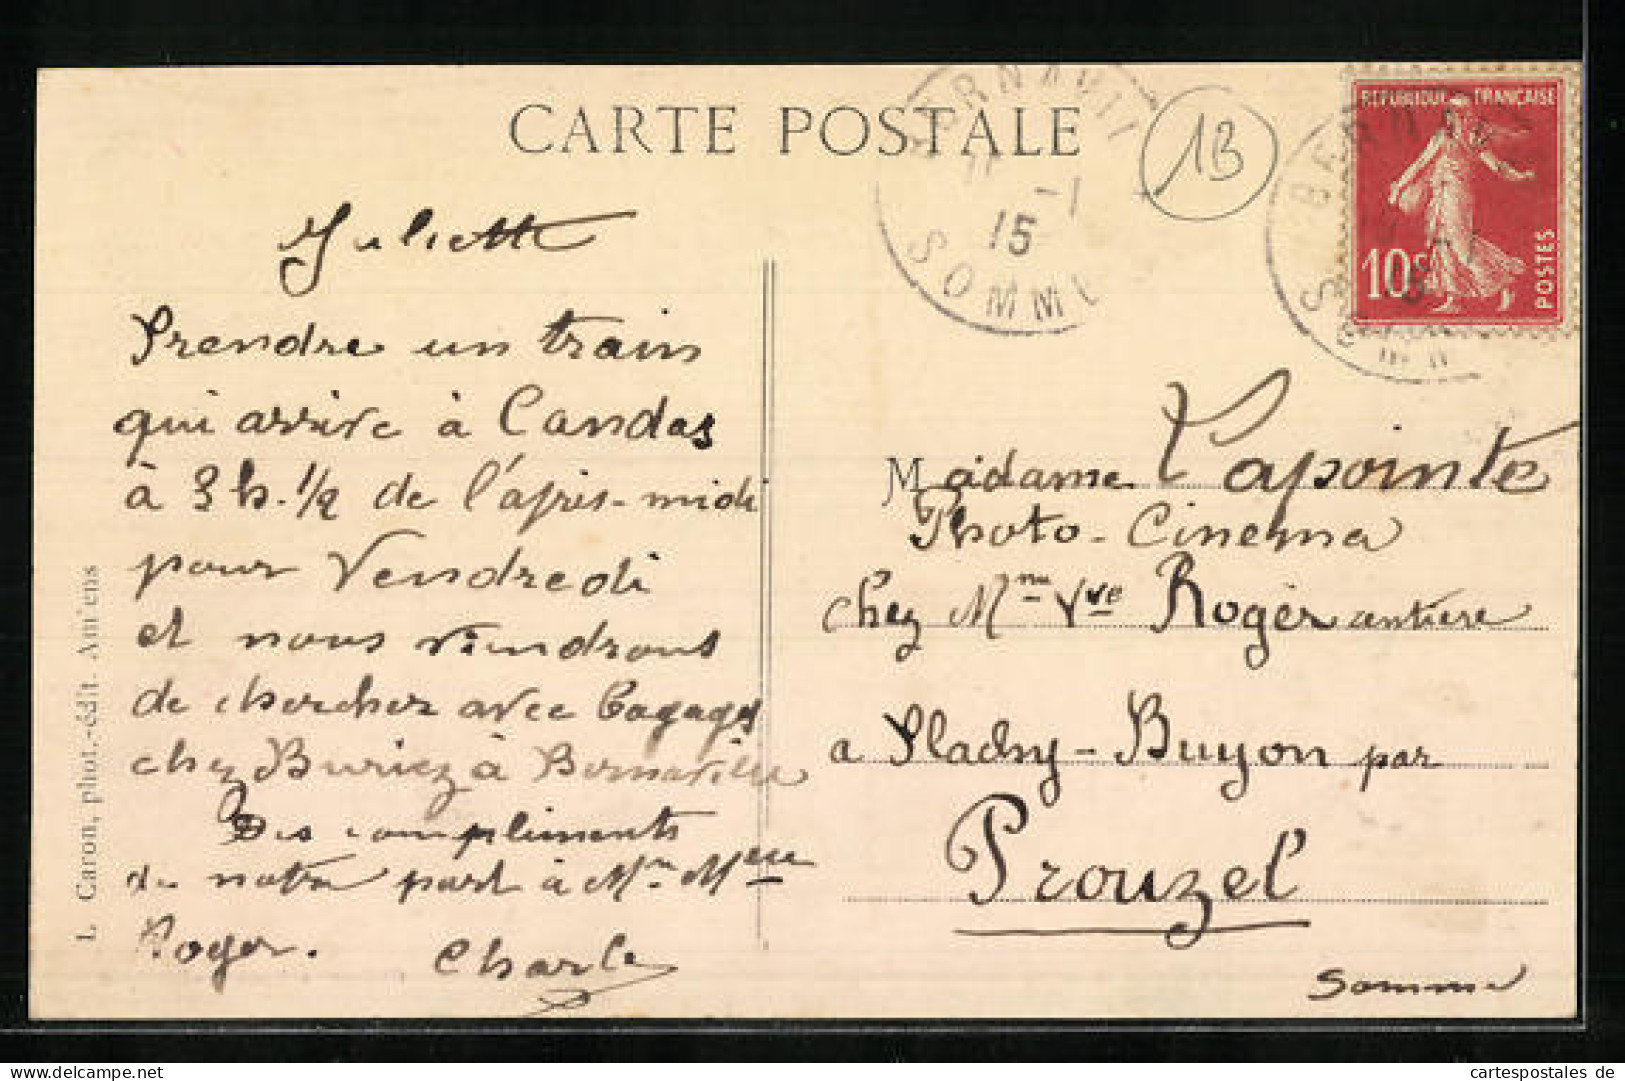 CARTE POSTALE
BERNAVILL
11 -1
15
SOMME
1B
REPUBLIQUE FRANÇAISE
10c
POSTES
Juliette
Prendre un train
qui arrive à Candas
à 3 h. 1/2 de l'après-midi
pour Vendredi
et nous viendrons
de chercher avec bagages
chez Buriez à Bernaville
Des compliments
de notre part à Mr Mme
Roger. Charles
Madame Lapointe
Photo-Cinema
chez Mme Vve Roger
a Plachy-Buyon par
Prouzel
Somme
L. Caron, phot.-édit. Amiens
cartespostales de